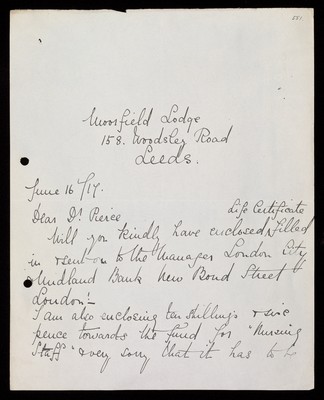 251.
Moorfield Lodge
158. Woodsley Road
Leeds.
June 16/17.
Dear Dr Pierce
Life Certificate
Will you kindly have enclosed filled
in & sent on to the "Manager London City
& Midland Bank New Bond Street"
London!-
I am also enclosing ten shillings & six
pence towards the Fund for "Nursing
Staff" & very sorry that it has to b